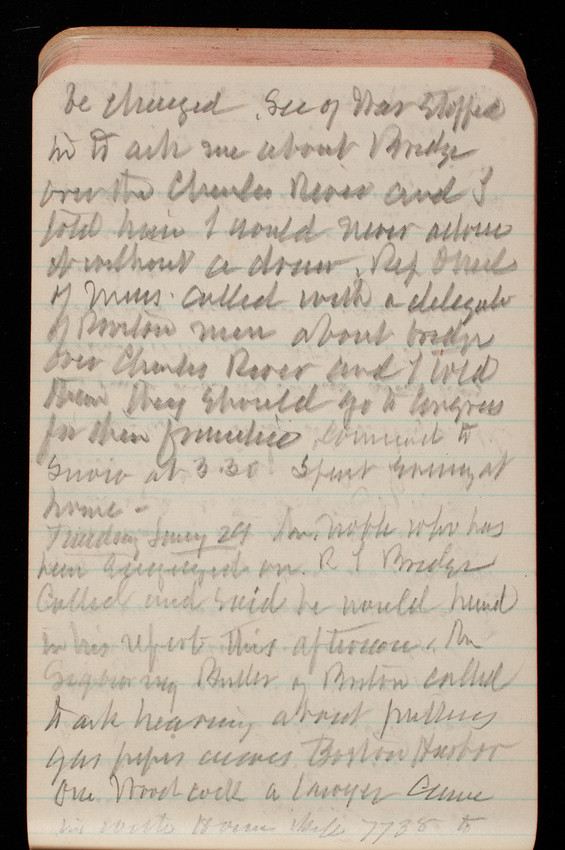 be changed. Sec of War stopped
in to ask me about Bridge
over the Charles River and I
told him I would never advise
it without a draw. Rep O'Neil
of Mass. called with a delegate
of Boston men about bridge
over Charles River and I told
them they should go to Congress
for their franchise,
at 3.30 Spent Evening at
home -
Tuesday 29 Mr. Noble who has
been on R I Bridge
Called and said he would hand
in his report this afternoon. Mr
Butler of Boston called
to ask hearing about putting
gas pipes across Boston Harbor
One Woodcock a lawyer came
in with 7738 to